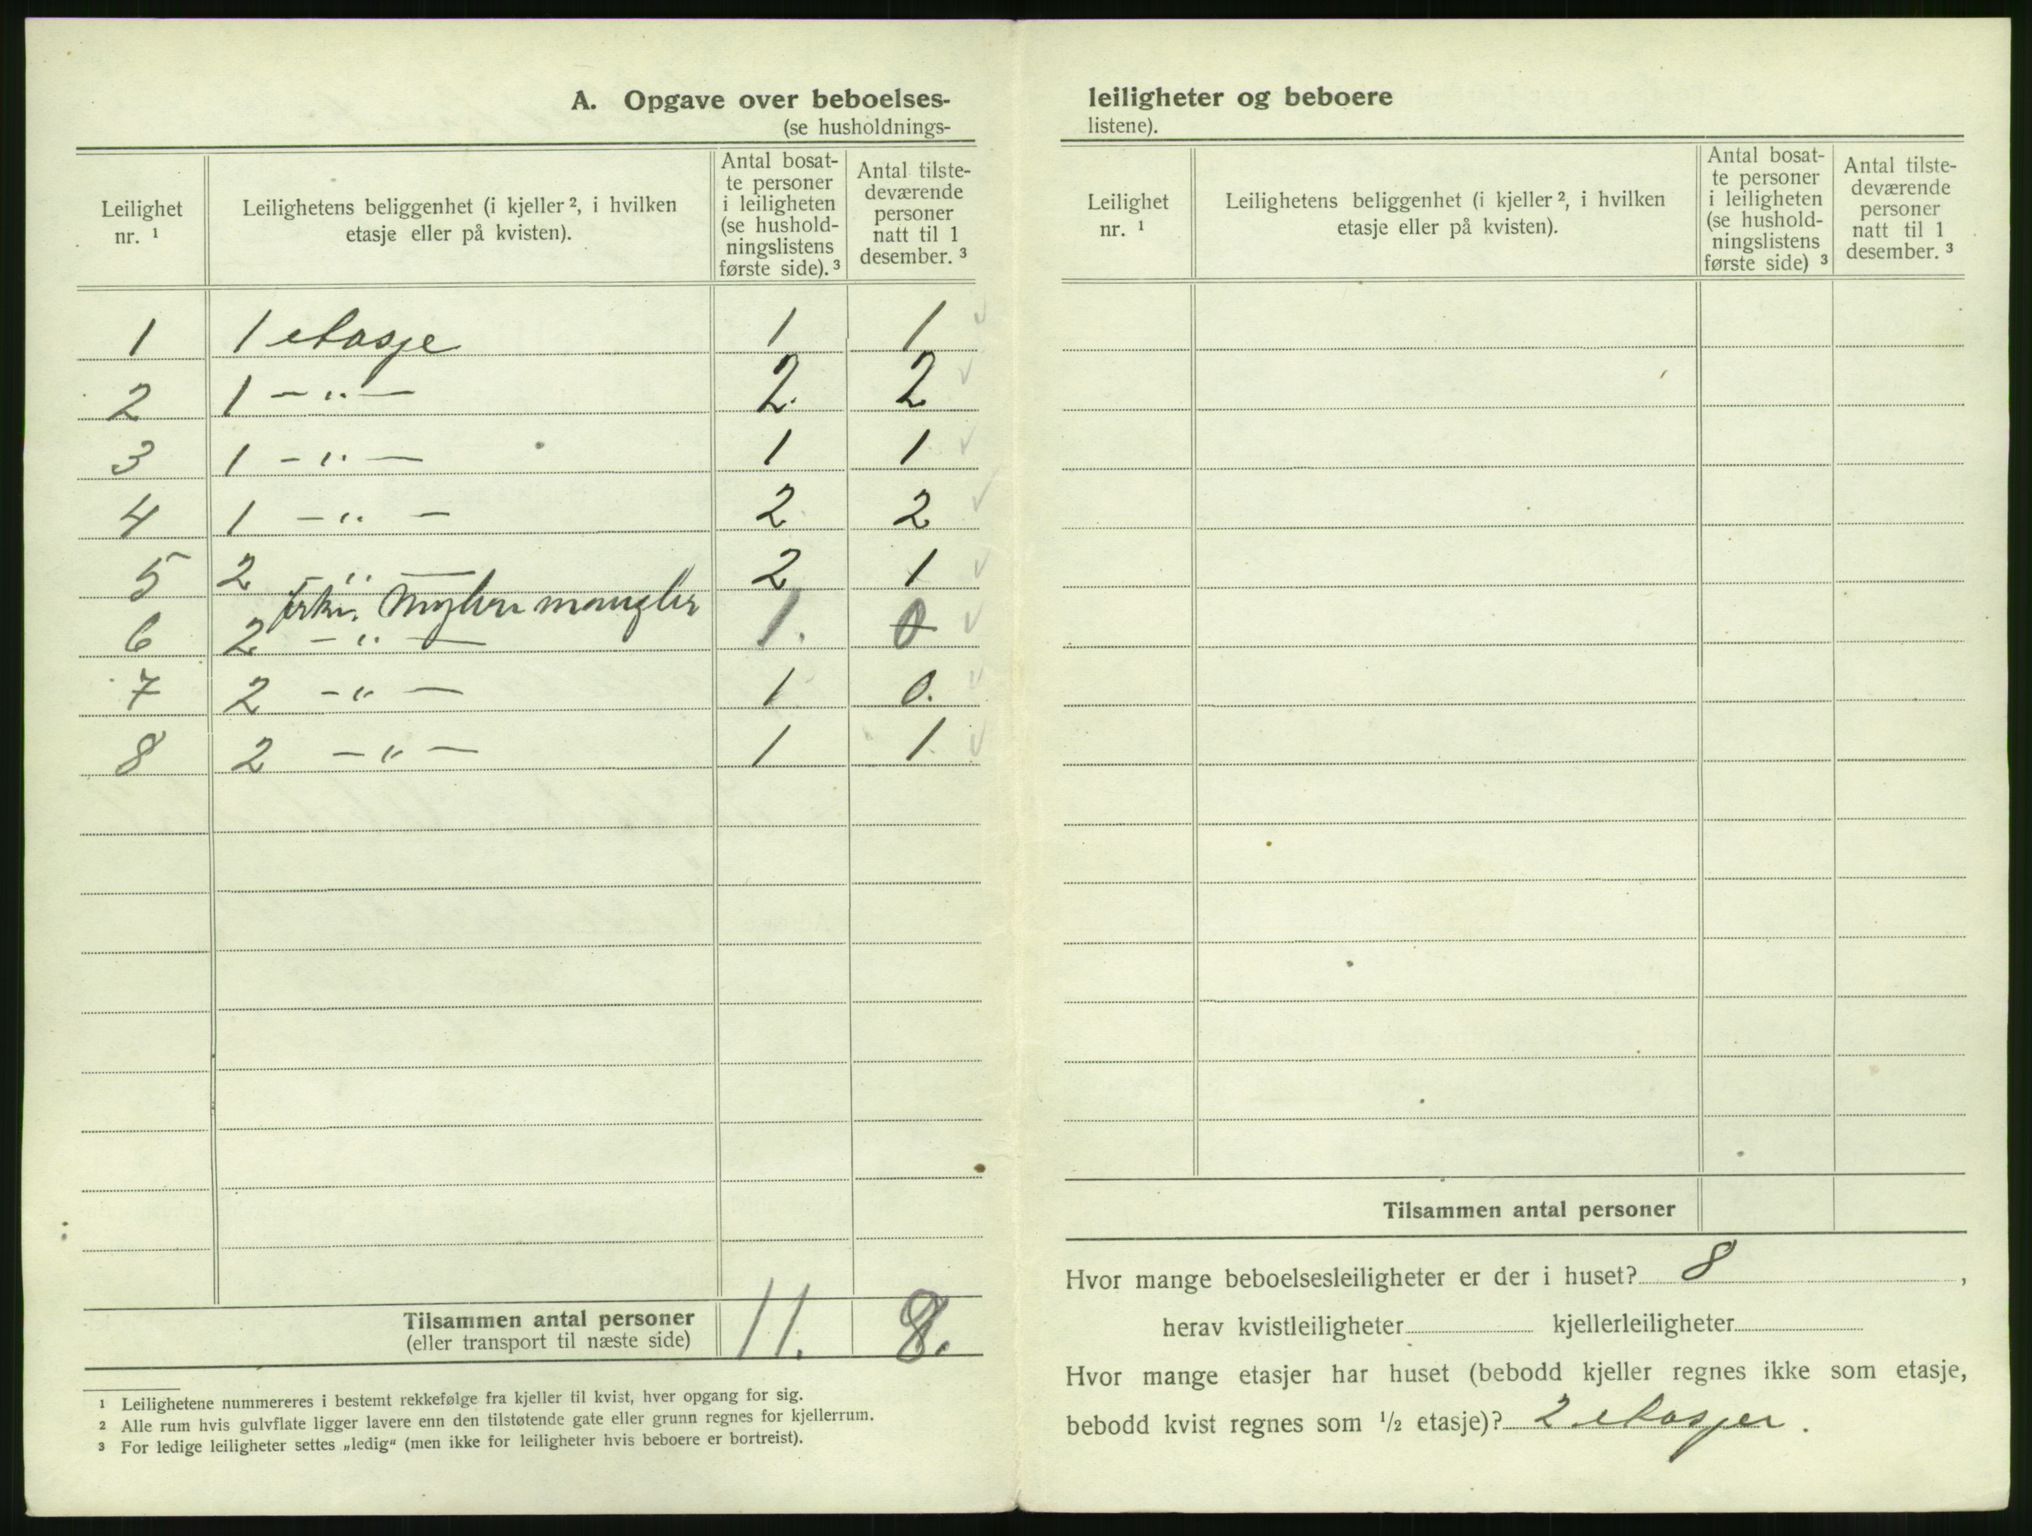 A. Opgave over beboelses-
(se husholdnings-
Leilighet nr. ¹
Leilighetens beliggenhet (i kjeller ², i hvilken etasje eller på kvisten).
Antal bosatte personer i leiligheten (se husholdningslistens første side). ³
Antal tilstedeværende personer natt til 1 desember. ³
1 1 etasje 1 1
2 1 — „ — 2 2
3 1 — „ — 1 1
4 1 — „ — 2 2
5 2 — „ — 2 1
mangler
6 2 — „ — 1. 0
7 2 — „ — 1 0.
8 2 — „ — 1 1
Tilsammen antal personer 11. 8.
(eller transport til næste side)
¹ Leilighetene nummereres i bestemt rekkefølge fra kjeller til kvist, hver opgang for sig.
² Alle rum hvis gulvflate ligger lavere enn den tilstøtende gate eller grunn regnes for kjellerrum.
³ For ledige leiligheter settes „ledig“ (men ikke for leiligheter hvis beboere er bortreist).
leiligheter og beboere
listene).
Leilighet nr. ¹
Leilighetens beliggenhet (i kjeller ², i hvilken etasje eller på kvisten).
Antal bosatte personer i leiligheten (se husholdningslistens første side) ³
Antal tilstedeværende personer natt til 1 desember. ³
Tilsammen antal personer
Hvor mange beboelsesleiligheter er der i huset? 8 ,
herav kvistleiligheter kjellerleiligheter
Hvor mange etasjer har huset (bebodd kjeller regnes ikke som etasje,
bebodd kvist regnes som ½ etasje)? 2 etasjer .